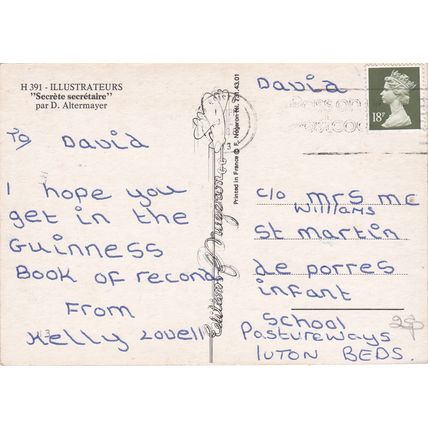 H 391 - ILLUSTRATEURS
"Secrète secrétaire"
par D. Altermayer
To David
I hope you
get in the
Guinness
Book of record
From
Kelly Lovell
Editions
Printed in France © E. Nugeron
David
18P
c/o mrs mc
Williams
St martin
de porres
infant
School
Pastureways
luton BEDS.